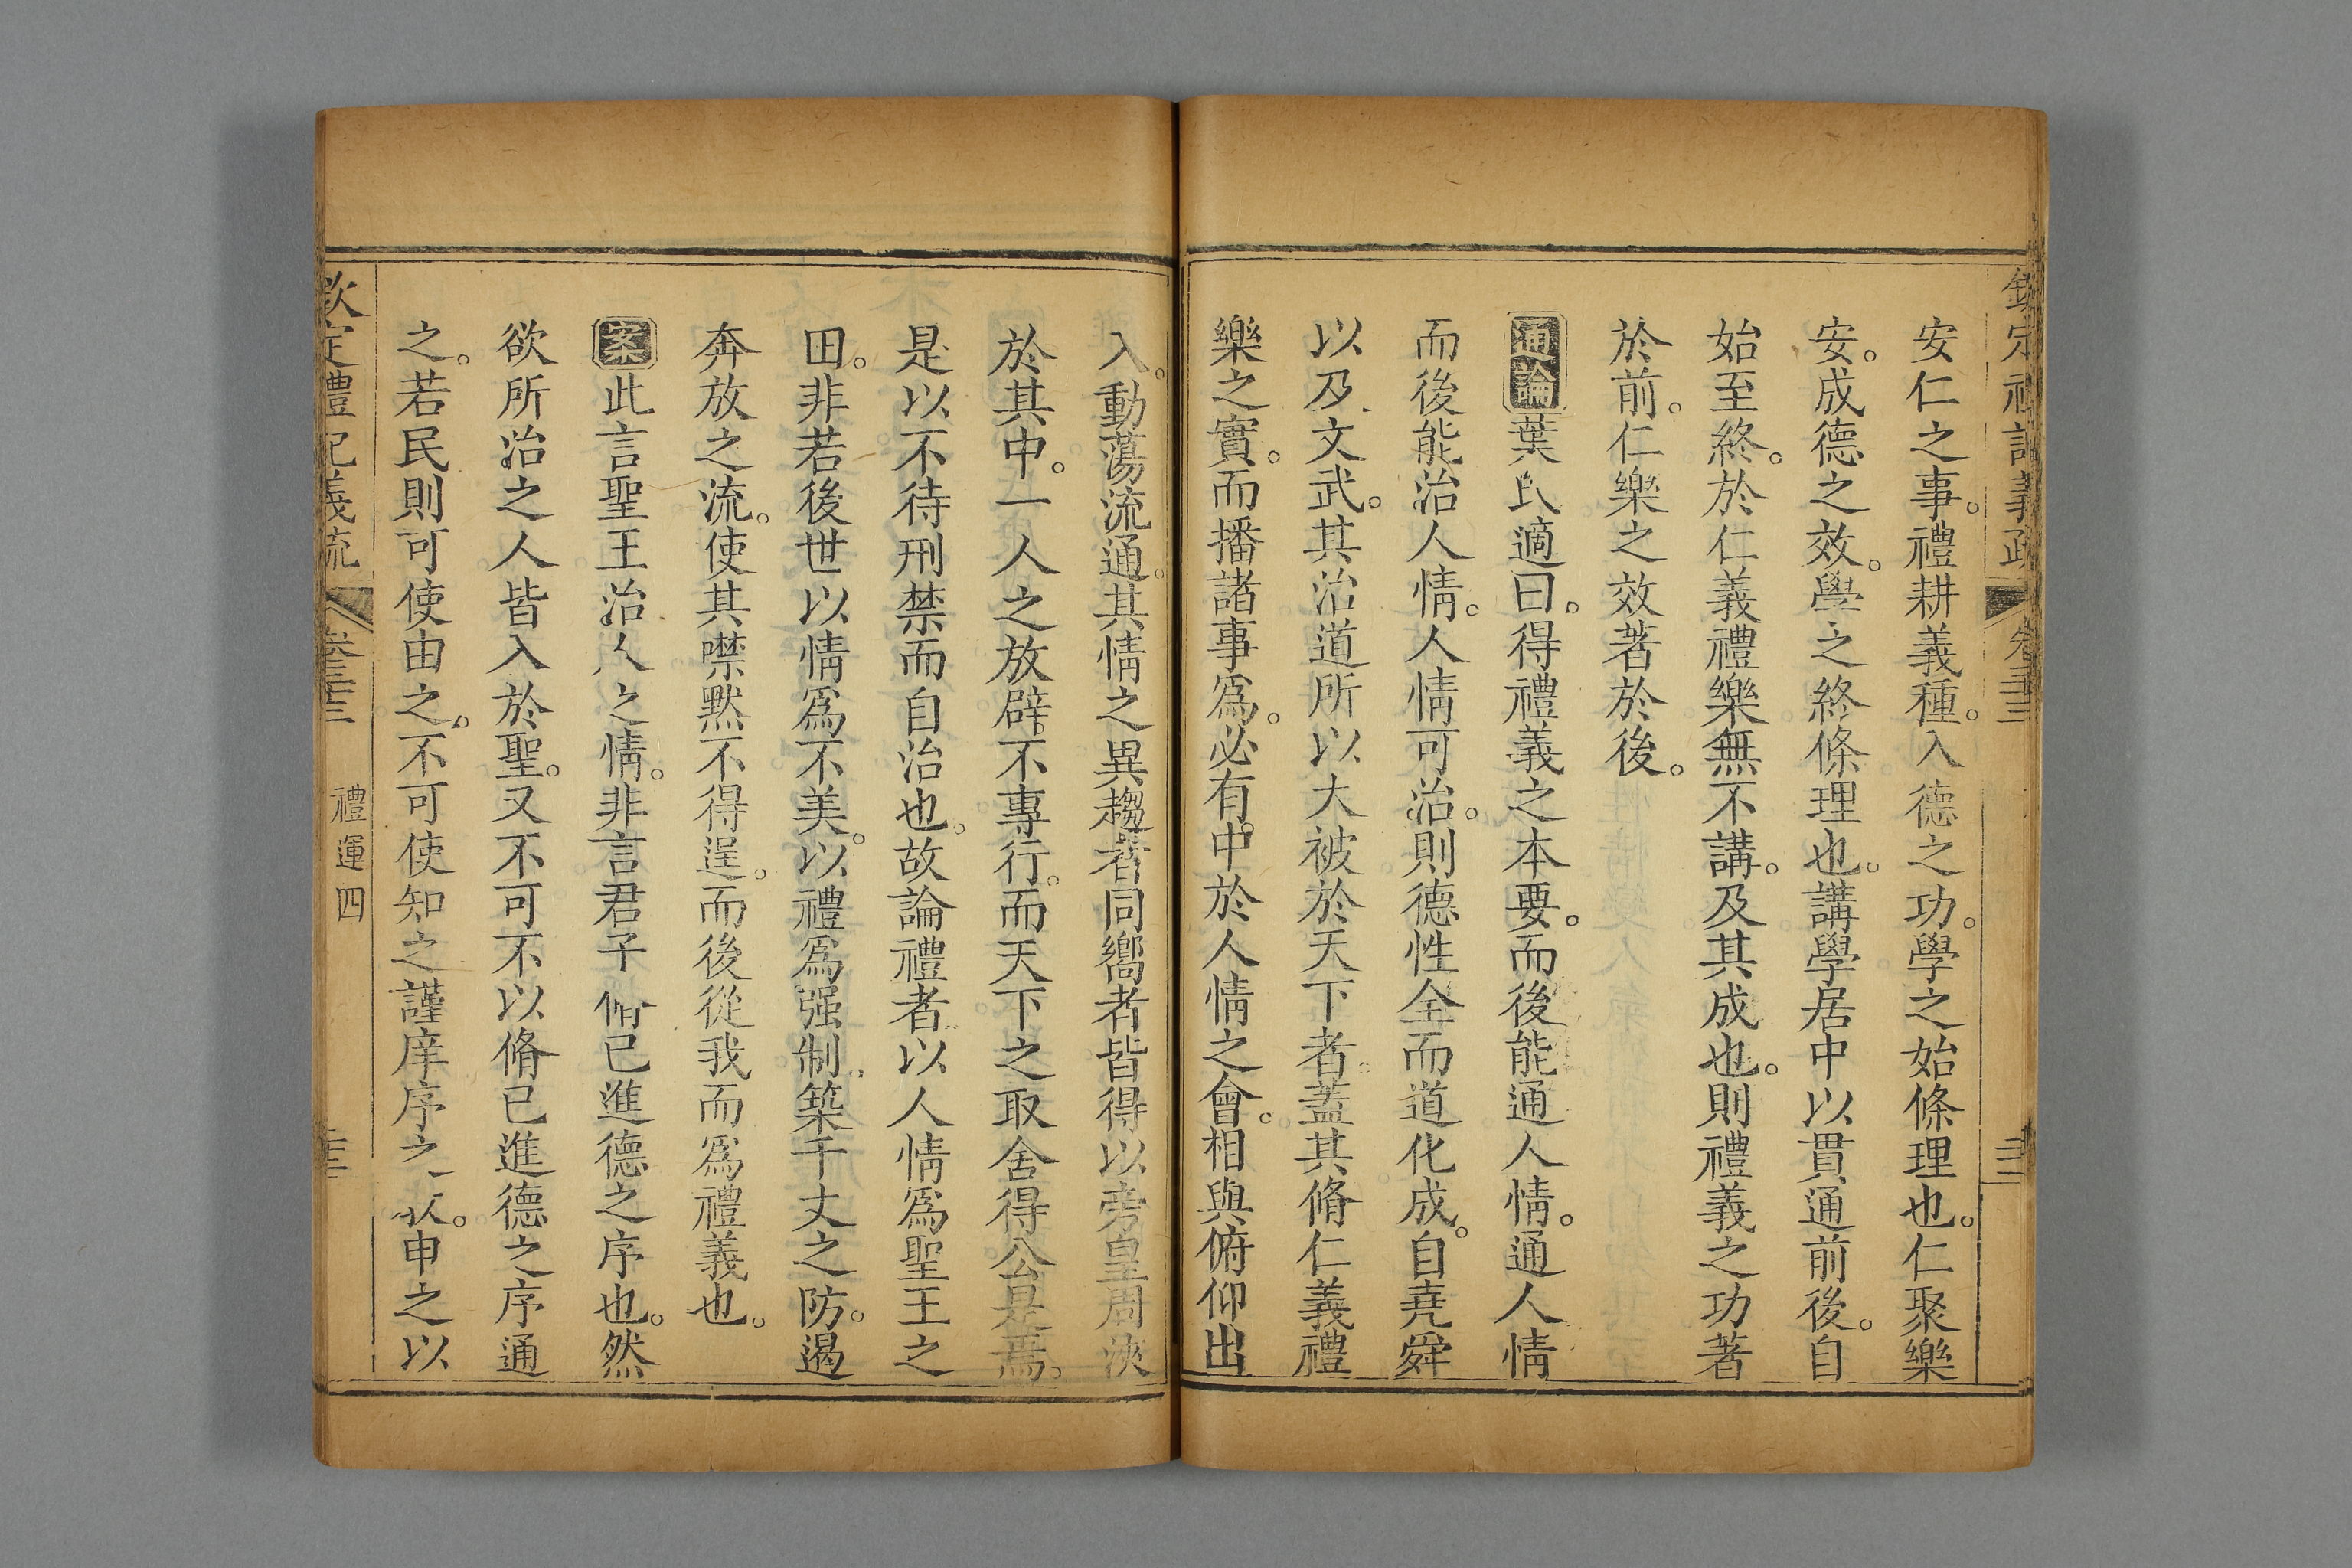 欽定禮記義疏 卷三十三
安仁之事。禮耕義種。入德之功。學之始條理也。仁聚樂
安。成德之效。學之終條理也。講學居中以貫通前後。自
始至終。於仁義禮樂無不講。及其成也。則禮義之功著
於前。仁樂之效著於後。
通論葉氏適曰。得禮義之本要。而後能通人情。通人情
而後能治人情。人情可治。則德性全而道化成。自堯舜
以及文武。其治道所以大被於天下者。蓋其脩仁義禮
樂之實。而播諸事為。必有中於人情之會。相與俯仰出
入。動蕩流通。其情之異趨者同嚮者皆得以旁皇周浹
於其中。一人之放辟。不專行。而天下之取舍得公是焉。
是以不待刑禁而自治也。故論禮者以人情為聖王之
田。非若後世以情為不美。以禮為强制。築千丈之防。遏
奔放之流。使其噤默不得逞。而後從我而為禮義也。
案此言聖王治人之情。非言君子脩已進德之序也。然
欲所治之人皆入於聖。又不可不以脩已進德之序通
之。若民則可使由之。不可使知之謹庠序之 申之以
欽定禮記義疏 卷三十三 禮運四